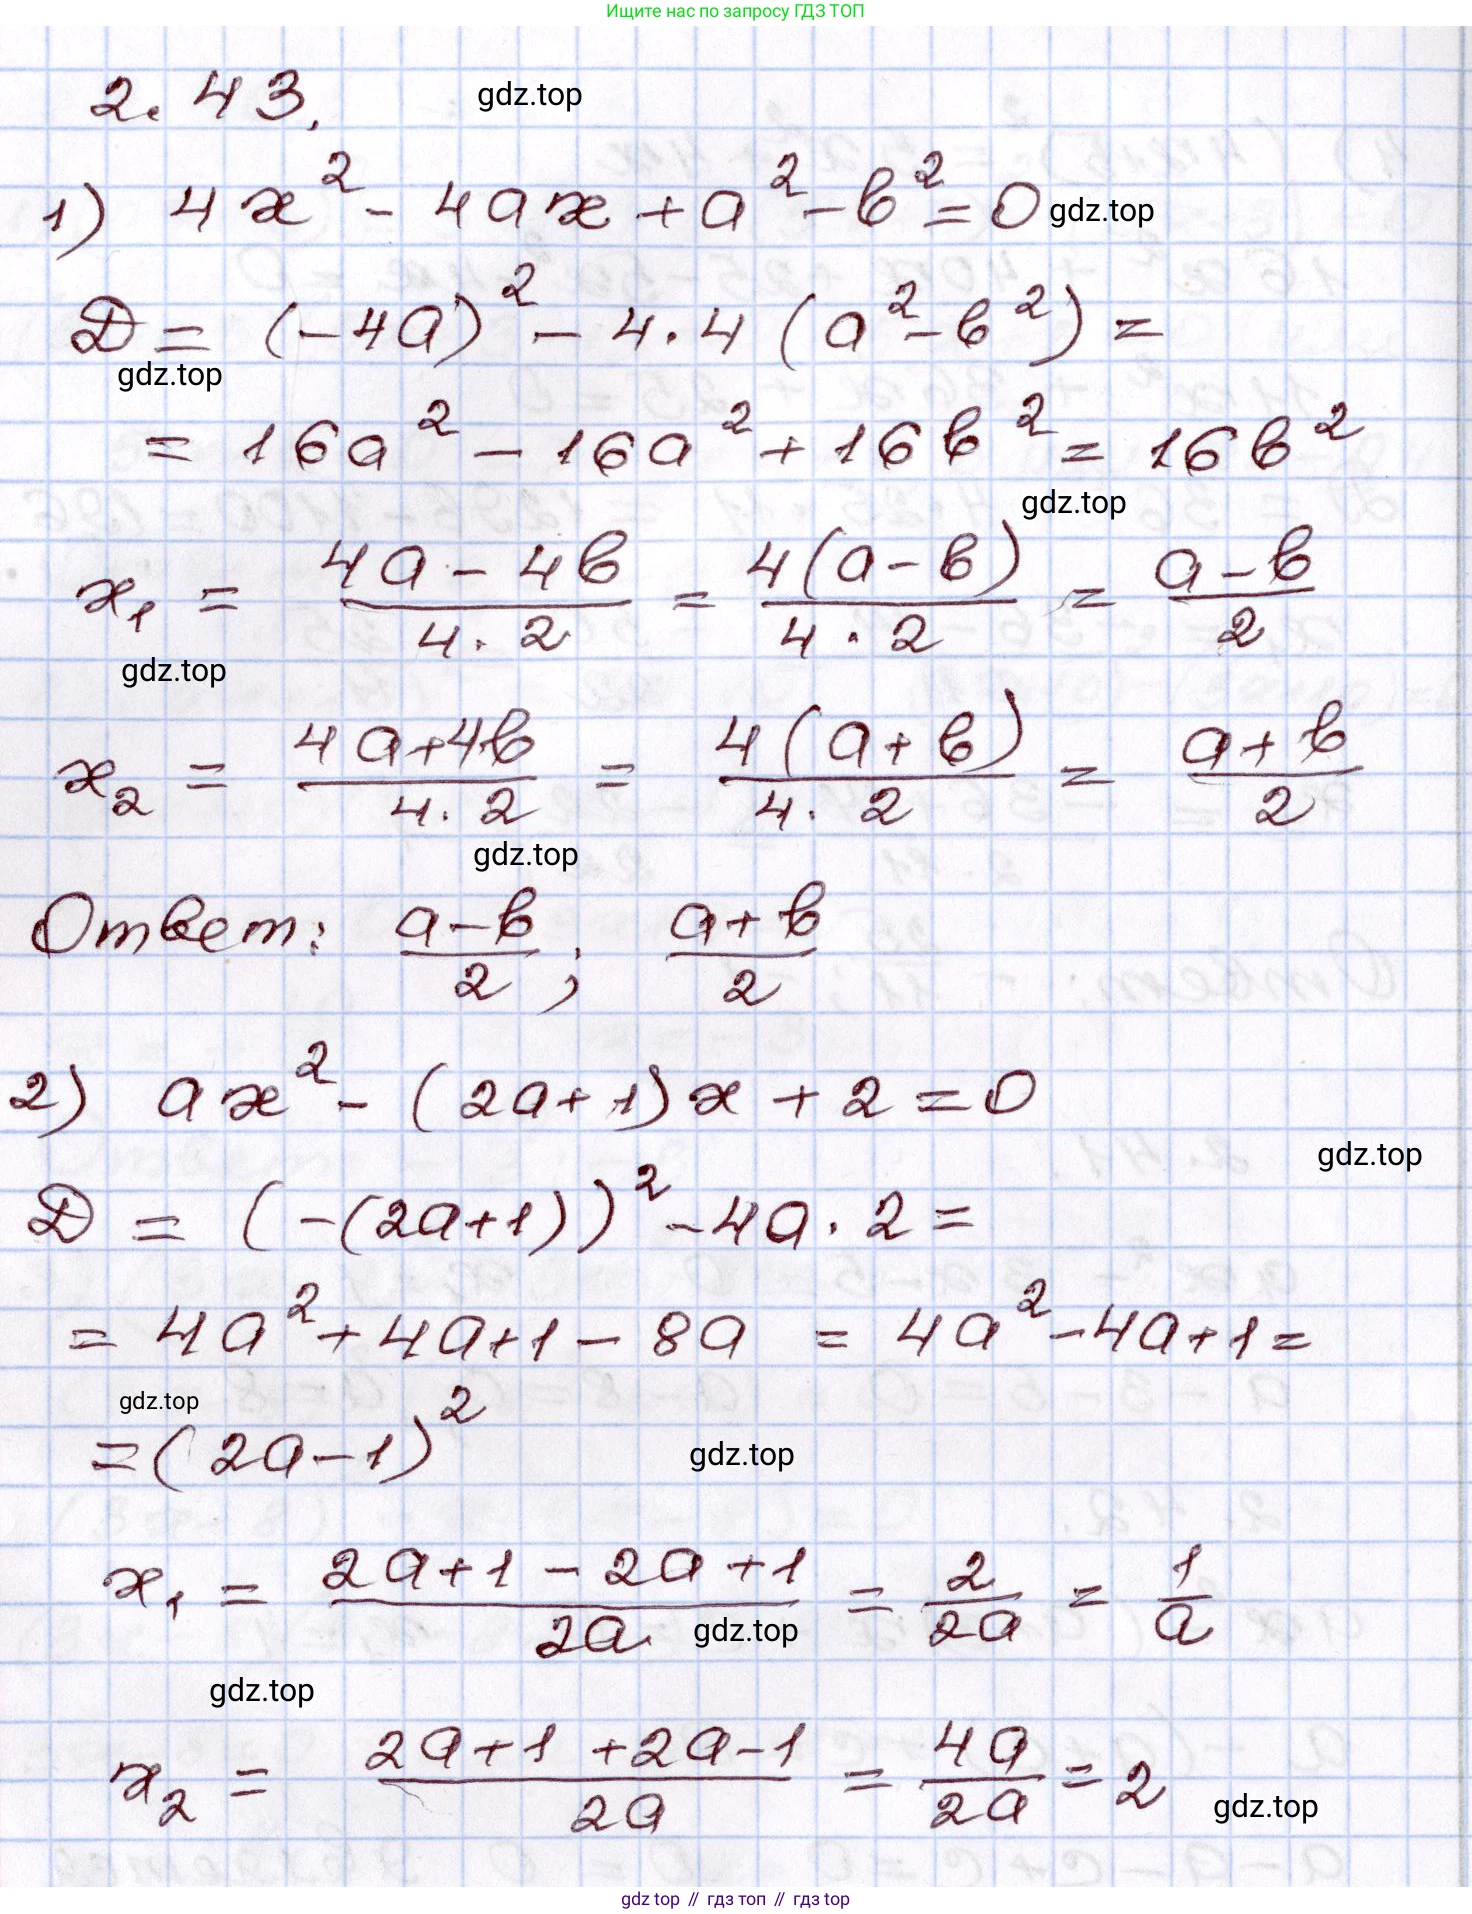 Ищите нас по запросу ГДЗ ТОП
2.43.
gdz.top
1) 4x² - 4ax + a² - b² = 0
gdz.top
D = (-4a)² - 4·4(a² - b²) =
gdz.top
= 16a² - 16a² + 16b² = 16b²
gdz.top
x₁ = (4a - 4b)/(4·2) = 4(a - b)/(4·2) = (a - b)/2
gdz.top
x₂ = (4a + 4b)/(4·2) = 4(a + b)/(4·2) = (a + b)/2
gdz.top
Ответ: (a - b)/2; (a + b)/2
2) ax² - (2a + 1)x + 2 = 0
gdz.top
D = (-(2a + 1))² - 4a·2 =
= 4a² + 4a + 1 - 8a = 4a² - 4a + 1 =
gdz.top
= (2a - 1)²
gdz.top
x₁ = (2a + 1 - 2a + 1)/(2a) = 2/(2a) = 1/a
gdz.top
gdz.top
x₂ = (2a + 1 + 2a - 1)/(2a) = 4a/(2a) = 2
gdz.top
gdz top // гдз топ // гдз top